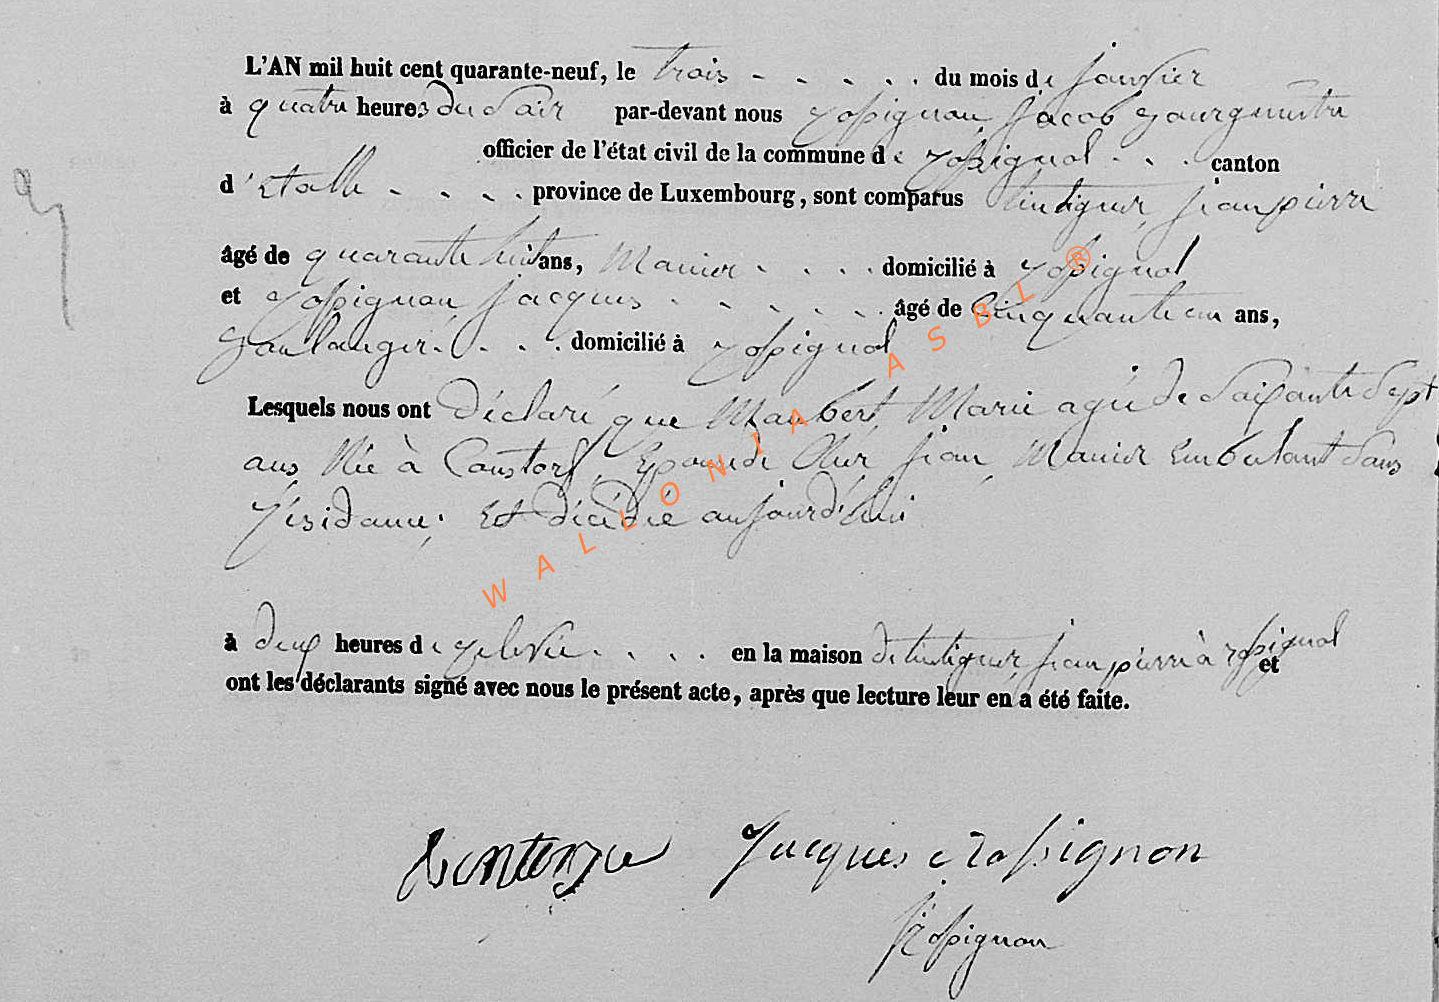 L'AN mil huit cent quarante-neuf, le trois - - - - - du mois de janvier
à quatre heures du Soir par-devant nous rossignon Jacob Bourgmestre
officier de l'état civil de la commune de rossignol - - - canton
d'Etalle - - - - province de Luxembourg, sont comparus tintiger jean pierre
âgé de quarante huit ans, Manier - - - - domicilié à rossignol
et rossignon jacques - - - - - - âgé de Cinquante un ans,
Boulanger - - - domicilié à rossignol
Lesquels nous ont déclaré que Maubert Marie agée de Soixante Sept
ans Née à Epouse de jean Manier Embulant Sans
résidance. Et décédée aujourd'hui
à deux heures de relevée - - - - en la maison de tintiger jean pierre à rossignol et
ont les déclarants signé avec nous le présent acte, après que lecture leur en a été faite.
Jacques rossignon
Rossignon
WALLONIA ASBL ®